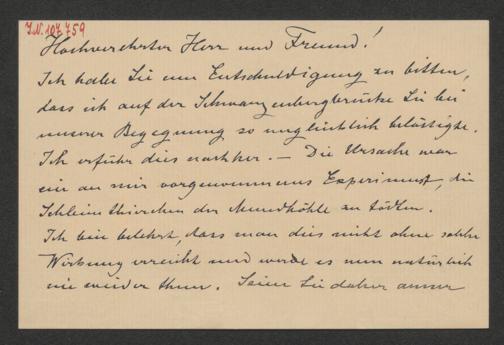 J.N. 107.759
Hochverehrter Herr und Freund!
Ich habe Sie um Entschuldigung zu bitten,
dass ich auf der Schwarzenbergbrücke Sie bei
unserer Begegnung so unglücklich belästigte.
Ich erfuhr dies nachher. — Die Ursache war
ein an mir vorgenommenes Experiment, die
Schleimthierchen der Mundhöhle zu tödten.
Ich bin belehrt, dass man dies nicht ohne solche
Wirkung erreicht und werde es nun natürlich
nie wieder thun. Seien Sie daher